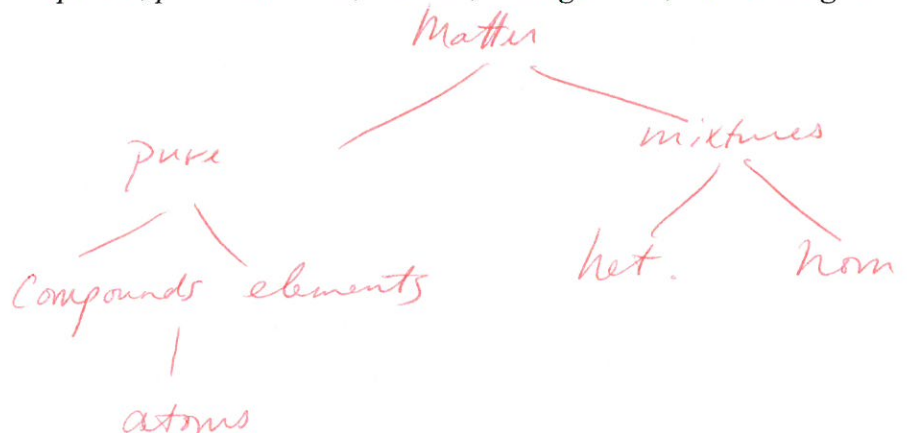 Matter
pure mixtures
Compounds elements het. hom
atoms